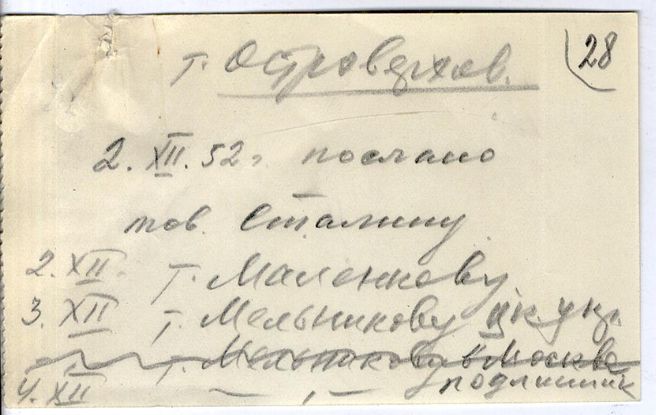 28
т. Островерхов.
2. XII. 52 г. послано
тов. Сталину
2. XII. т. Маленкову
3. XII т. Мельникову цк. укр.
т. Мельникову в Москве
4. XII — „ — подлинник